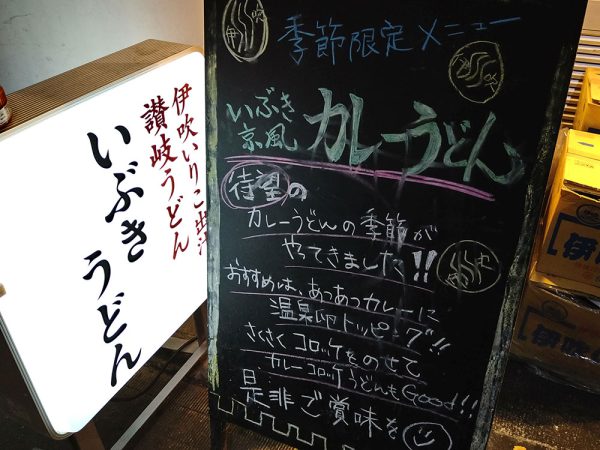 伊吹いりこ出汁
讃岐うどん
いぶき うどん
伊吹
季節限定メニュー
いぶき
京風
カレーうどん
待望の
カレーうどんの季節が
やってきました!!
おすすめは、あつあつカレーに
温泉卵トッピング!!
さくさくコロッケをのせて
カレーコロッケうどんもGood!!
是非ご賞味を
伊吹
伊吹